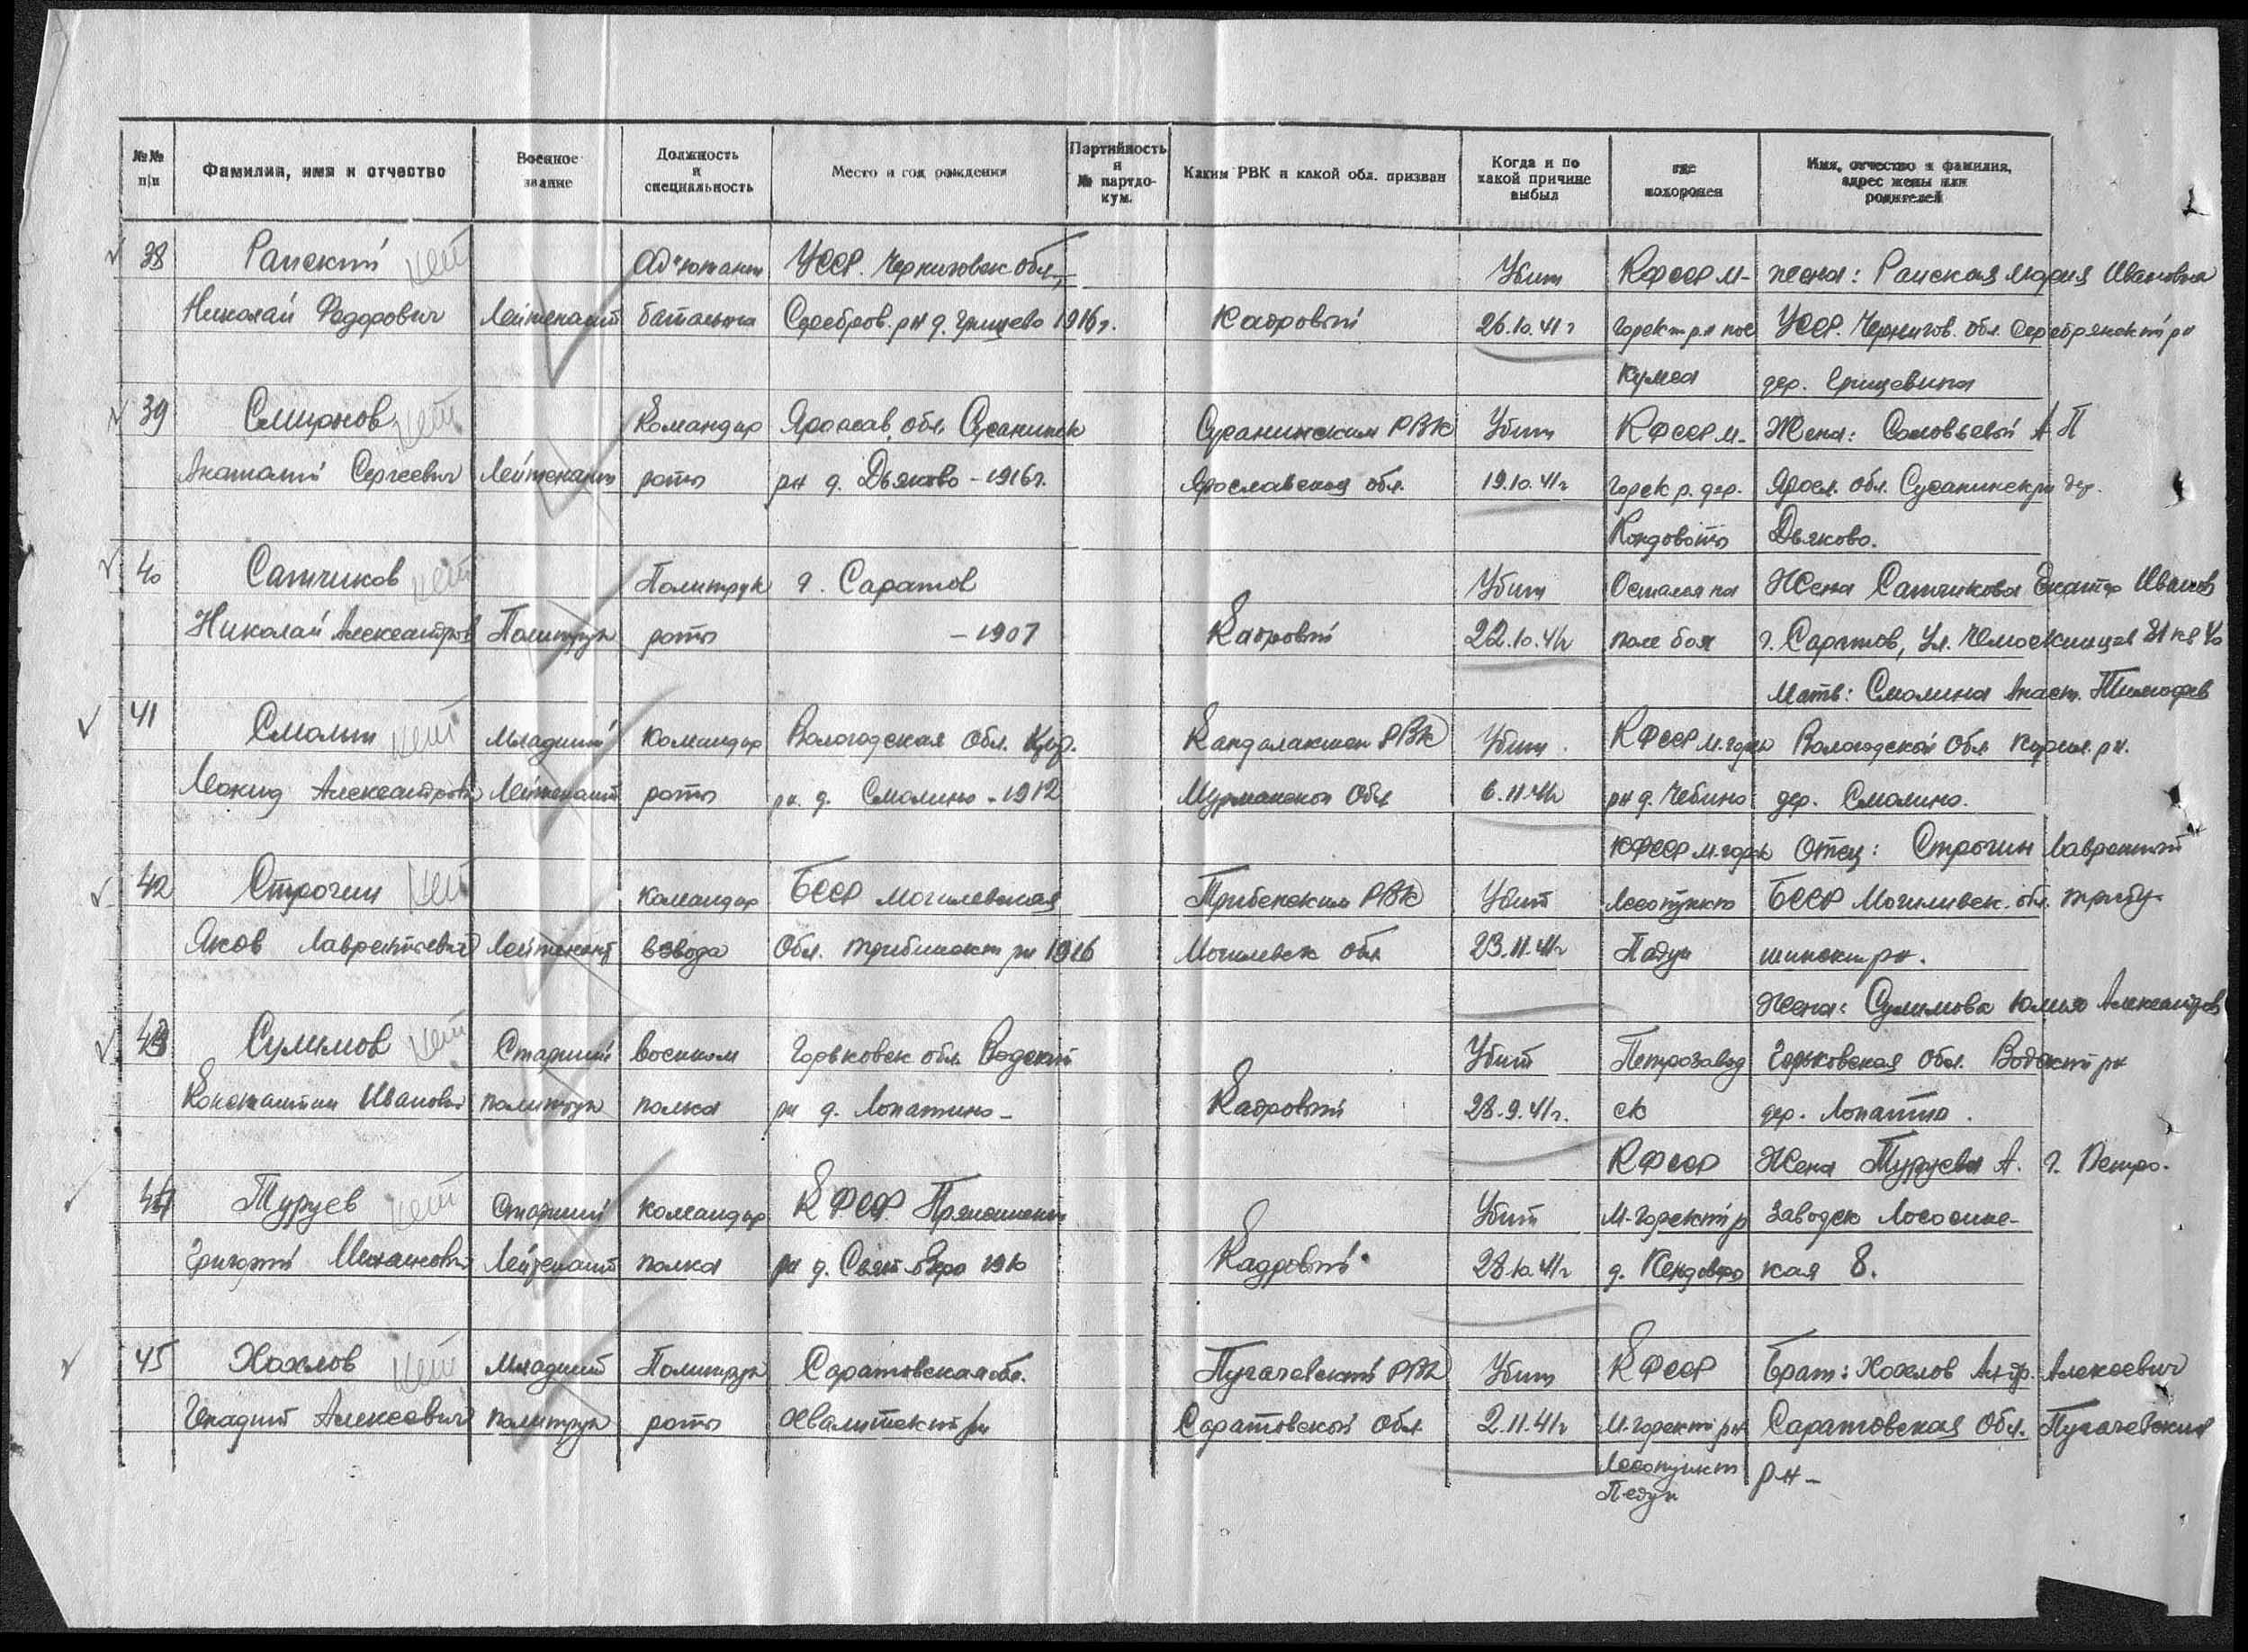 №№ п/п
Фамилия, имя и отчество
Военное звание
Должность и специальность
Место и год рождения
Партийность и № партдокум.
Каким РВК и какой обл. призван
Когда и по какой причине выбыл
где похоронен
Имя, отчество и фамилия, адрес жены или родителей
38 Раиский нет Ад"ютант УССР. Черниговск обл., Убит КФССР М- жена: Раиская Мария Ивановна
Николай Федорович Лейтенант батальона Сребров. рн д. Грицево 1916 г. Кадровый 26.10.41 г Горский рн пос УССР. Чернигов. обл. Серебрянский рн
Кумса дер. Грицевина
39 Смирнов нет Командир Яросав. обл. Сусанинск Сусанинским РВК Убит КФССР М- Жена: Соловьевой А П
Анатолий Сергеевич Лейтенант роты рн д. Дьяково - 1916 г. Ярославской обл. 19.10.41 г Горск р. дер. Яросл. обл. Сусанинск рн дер.
Дьяково.
40 Сатчиков нет Политрук г. Саратов Убит Остался на Жена Сатчикова Екатер Иванов
Николай Александров Политрук роты - 1907 Кадровый 22.10.41 г поле боя г. Саратов, ул. 31 кв 40
Мать: Смолина Анаст. Тимофев
41 Смолин нет Младший командир Вологодская обл. Кандалакшен РВК Убит. КФССР М.горск Вологодской обл. рн.
Леонид Александрович Лейтенант роты рн. д. Смолино - 1912 Мурманской обл 6.11.41 г рн д. Чебино дер. Смолино.
КФССР М.горск Отец: Строгин Лаврентий
42 Строгин нет командир БССР Могилевская РВК Убит Лесопункт БССР Могилевск. обл.
Яков Лаврентьевич Лейтенант взвода Обл. рн 1916 Могилевск обл 23.11.41 г Падун шинский рн.
Жена: Сулимова Юлия Александров
43 Сулимов нет Старший военком Горьковск обл. Вадский Убит Петрозавод Горьковская обл. Водский рн
Константин Иванович политрук полка рн д. Лопатино - Кадровый 28.9.41 г. ск дер. Лопатино.
КФССР Жена Туруева А. г. Петро-
44 Туруев нет Старший командир КФССР. Пряжинский Убит М-Горский р заводск Лососинс-
Григорий Михайлович Лейтенант полка рн д. Свят-озеро 1910 Кадровый 28.10.41 г д. кая 8.
45 Хохлов нет Младший Политрук Саратовская обл. Пугачевский РВК Убит КФССР Брат: Хохлов Алексеевич
Генадий Алексеевич политрук роты рн Саратовской обл 2.11.41 г М-горский рн Саратовская обл. Пугачевский
Лесопункт рн -
Падун